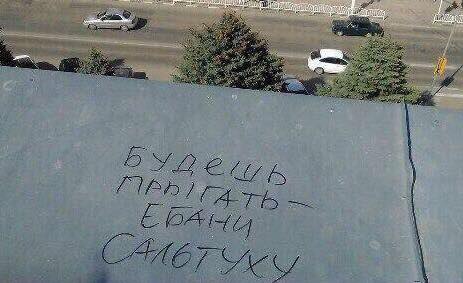 БУДЕШЬ
ПРЫГАТЬ -
ЕБАНИ
САЛЬТУХУ